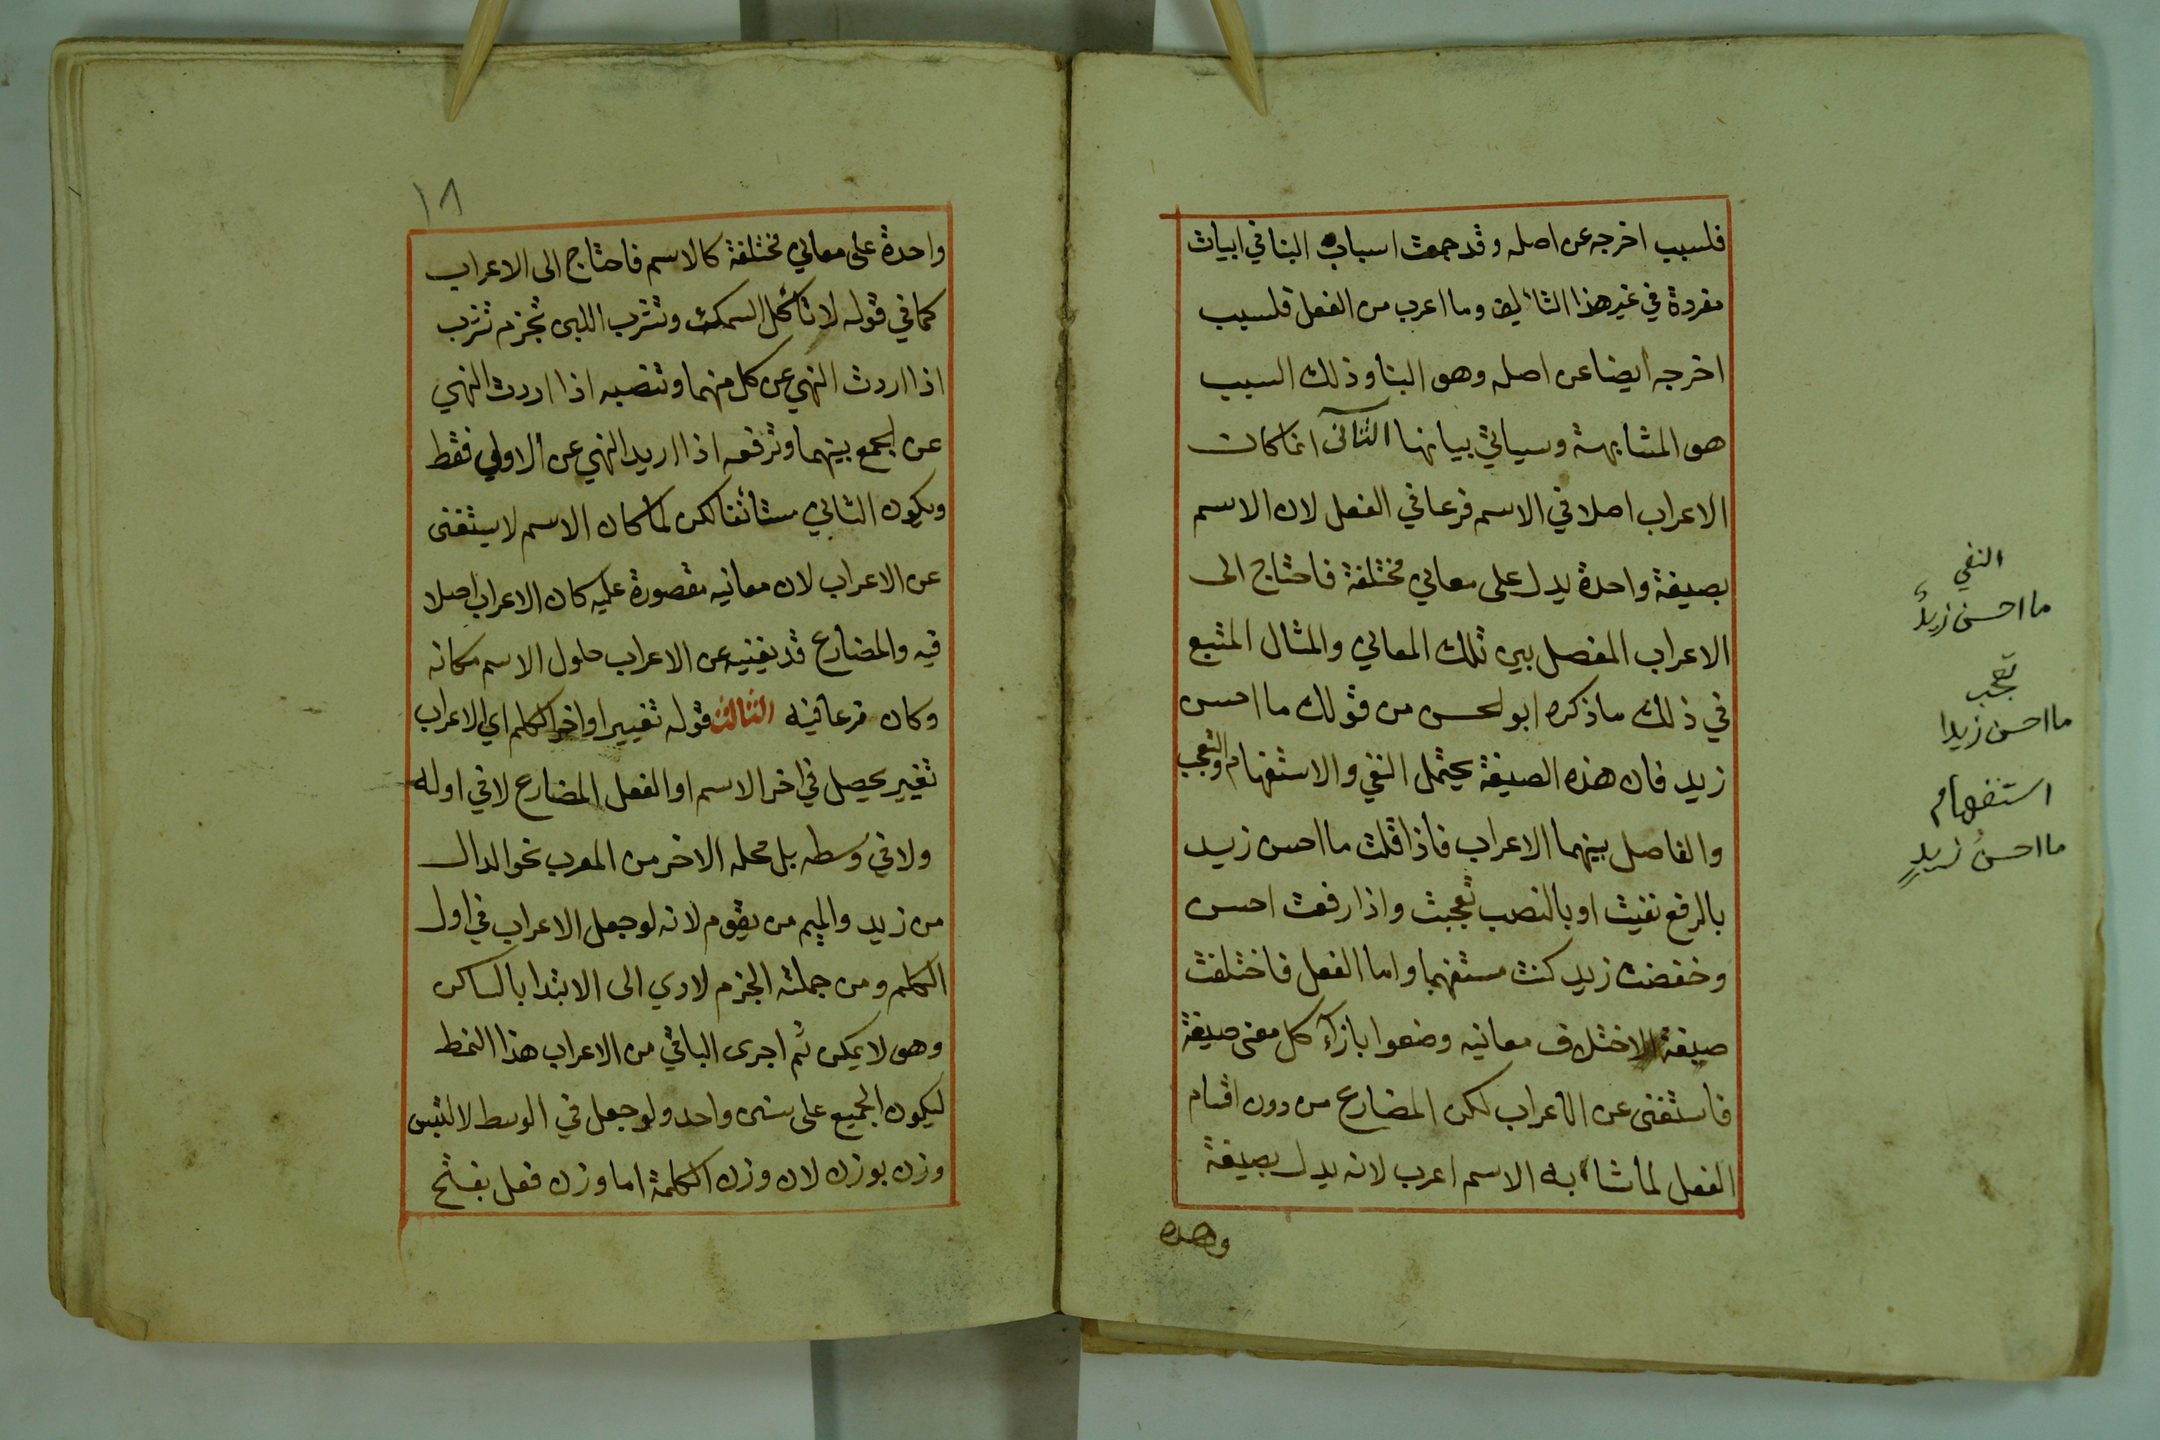 فلسبب اخرجه عن اصله وقد جمعت اسباب البنا في ابيات
مفردة في غير هذا التأليف وما اعرب من الفعل فلسبب
اخرجه أيضا عن اصله وهو البنا وذلك السبب
هو المشابهة وسياتي بيانها الثانى انما كان
الاعراب اصلا في الاسم فرعا في الفعل لان الاسم
بصيغة واحدة يدل على معاني مختلفة فاحتاج الى
الاعراب المفصل بين تلك المعاني والمثال المتبع
في ذلك ما ذكره ابو لحسن من قولك ما احسن
زيد فان هذه الصيغة يحتمل النفي والاستفهام والتعجب
والفاصل بينهما الاعراب فاذا قلت ما احسن زيد
بالرفع نفيت او بالنصب تعجبت واذا رفعت احسن
وخفضت زيد كنت مستفهما واما الفعل فاختلفت
صيغة لاختلاف معانيه وضعوا بازآء كل معنى صيغة
فاستغنى عن الاعراب لكن المضارع من دون اقسام
الفعل لما شابه الاسم اعرب لانه يدل بصيغة
وحده
النفي
ما احسن زيدٌ
تعجب
ما احسن زيدا
استفهام
ما احسنُ زيدٍ
١٨
واحدة على معاني مختلفة كالاسم فاحتاج الى الاعراب
كما في قوله لا تأكل السمك وتشرب اللبن تجزم تشرب
اذا اردت النهي عن كل منهما وتنصبه اذا اردت النهي
عن لجمع بينهما وترفعه اذا اريد النهي عن الاولي فقط
ويكون الثاني مستأنفا لكن لما كان الاسم لا يستغنى
عن الاعراب لان معانيه مقصورة عليه كان الاعراب اصلا
فيه والمضارع قد يغنيه عن الاعراب حلول الاسم مكانه
وكان فرعا فيه الثالث قوله تغيير اواخر الكلم اي الاعراب
تغيير يحصل في اخر الاسم او الفعل المضارع لا في اوله
ولا في وسطه بل محله الاخر من المعرب نحو الدال
من زيد والميم من يقوم لانه لو جعل الاعراب في اول
الكلم ومن جملته الجزم لادي الى الابتدا بالساكن
وهو لا يمكن ثم اجرى الباقي من الاعراب هذا النمط
ليكون الجميع على سنن واحد ولو جعل في الوسط لالتبس
وزن بوزن لان وزن الكلمة اما وزن فعل بفتح